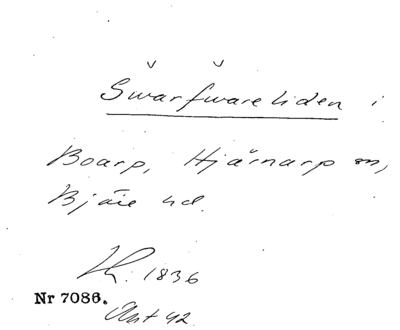 Swarfwareliden i
Boarp, Hjärnarp sn,
Bjäre hd.
1836
Nr 7086.
42